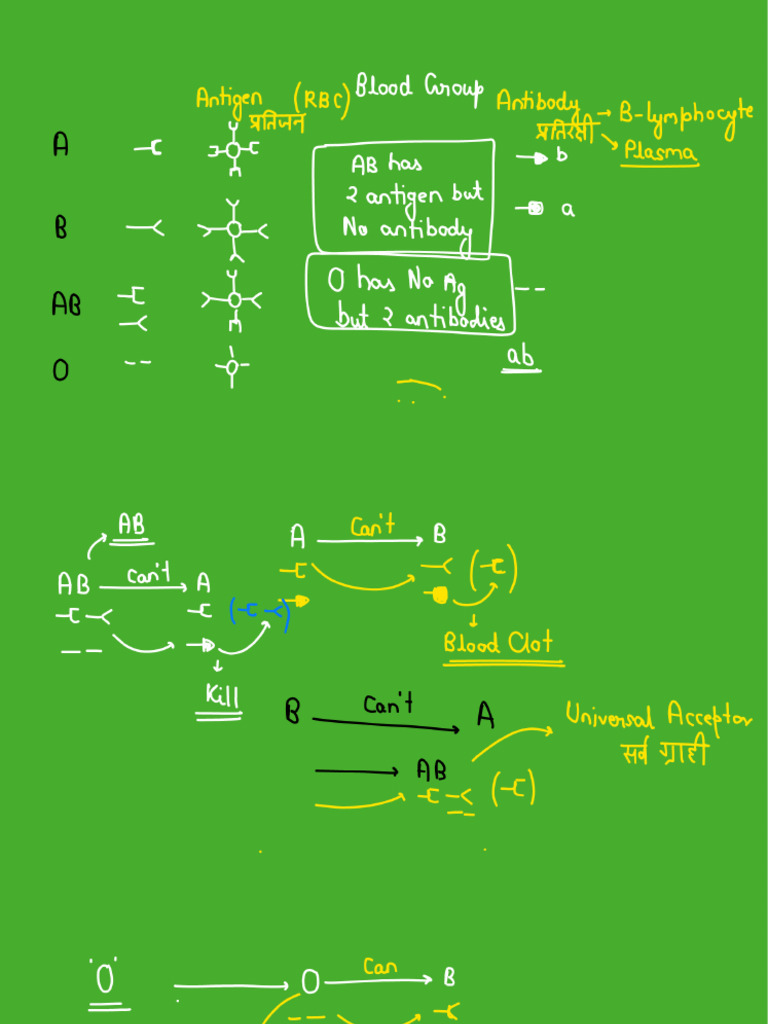 Blood Group
Antigen (RBC)
प्रतिजन
Antibody → B-lymphocyte
प्रतिरक्षी
Plasma
A
AB has
2 antigen but
No antibody
b
B
a
AB
O has No Ag
but 2 antibodies
O
ab
AB
A Can't B
AB Can't A
Blood Clot
Kill
B Can't A
Universal Acceptor
सर्व ग्राही
AB
'O'
O Can B